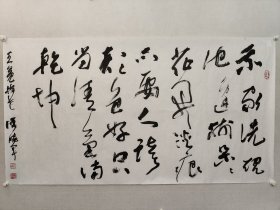 吾家洗硯
池邊樹朵朵
花開淡痕
不要人誇
顏色好只
留清氣滿
乾坤
王冕